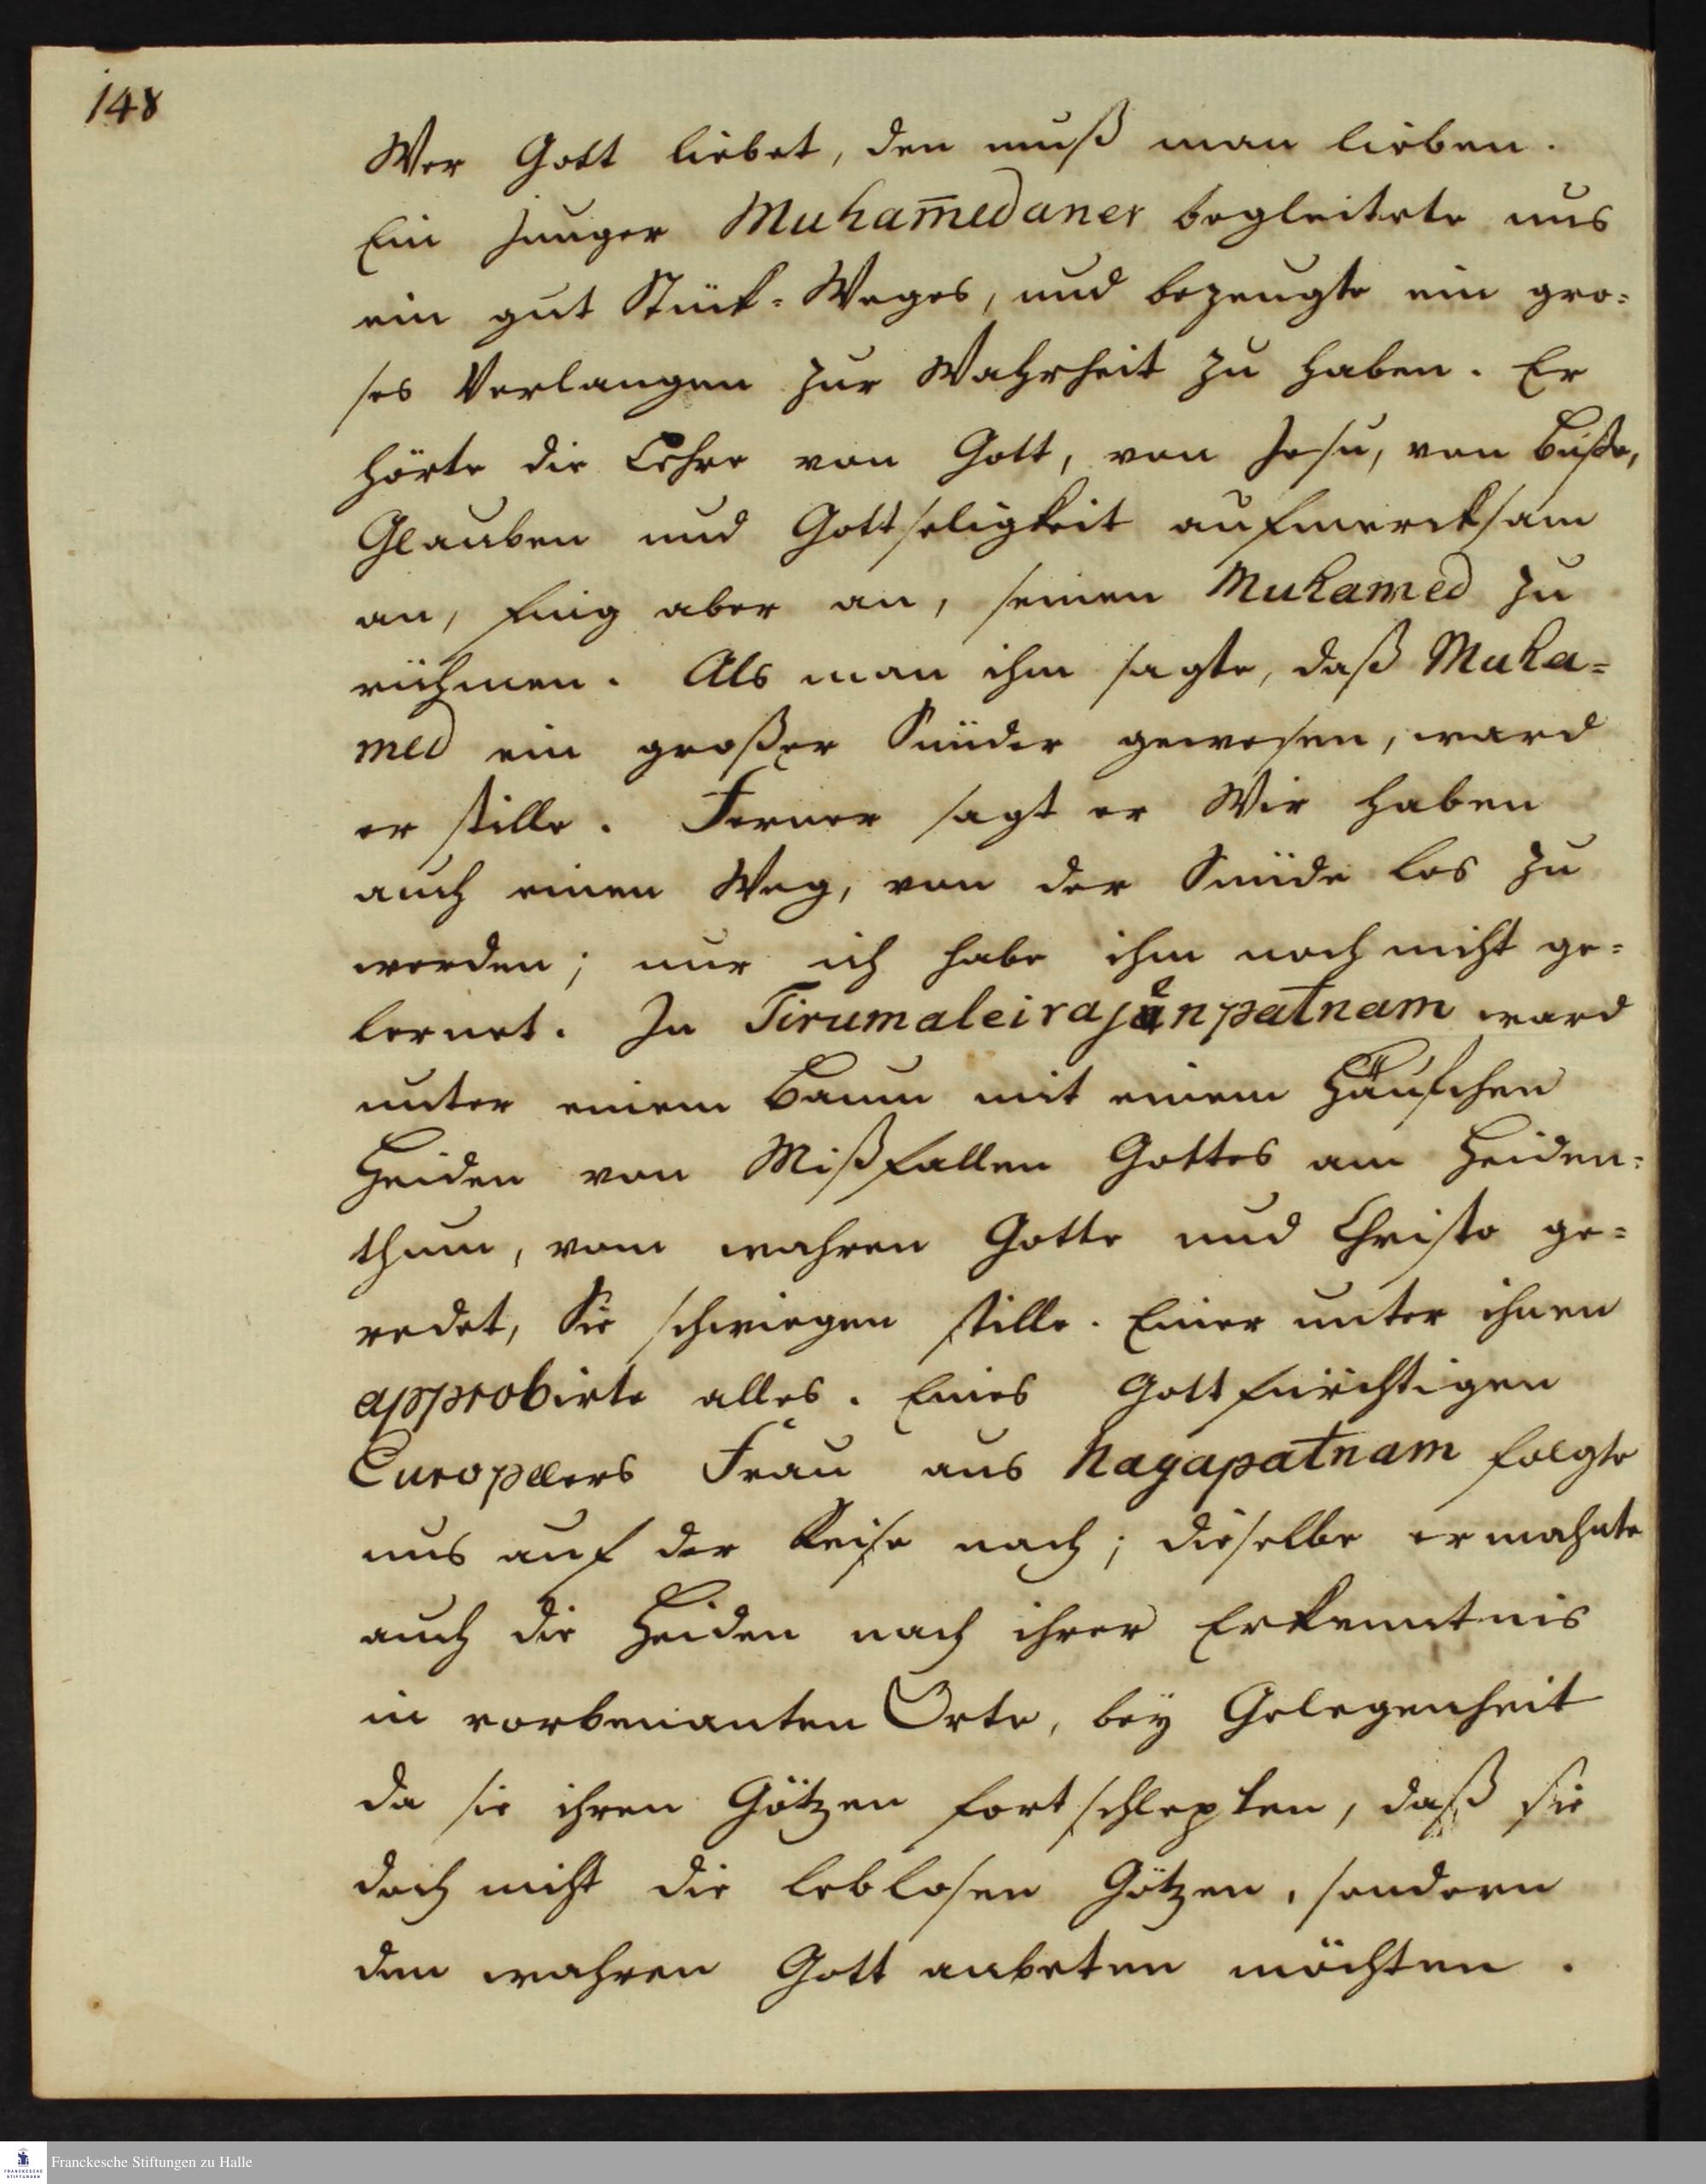 148
Wer Gott liebet, den muß man lieben.
Ein junger Muham̄edaner begleitete uns
ein gut Stück-Weges, und bezeugte ein gro-
ses Verlangen zur Wahrheit zu haben. Er
hörte die Lehre von Gott, von Jesu, von Buße,
Glauben und Gottseligkeit aufmercksam
an, fing aber an, seinen Muhamed zu
rühmen. Als man ihm sagte, daß Muha-
med ein großer Sünder gewesen, ward
er stille. Ferner sagt er Wir haben
auch einen Weg, von der Sünde los zu
werden; nur ich habe ihm noch nicht ge-
lernet. In Tirumaleirajänpatnam ward
unter einem Baum mit einem Häufchen
Heiden von Mißfallen Gottes am Heiden-
thum, vom wahren Gotte und Christo ge-
redet, Sie schwiegen stille. Einer unter ihnen
approbirte alles. Eines Gottfürchtigen
Europæers Frau aus Nagapatnam folgte
uns auf der Reise nach; dieselbe ermahnte
auch die Heiden nach ihrer Erkenntnis
in vorbenanten Orte, bey Gelegenheit
da sie ihren Götzen fortschlepten, daß sie
doch nicht die leblosen Götzen, sondern
den wahren Gott anbeten möchten.
Franckesche Stiftungen zu Halle